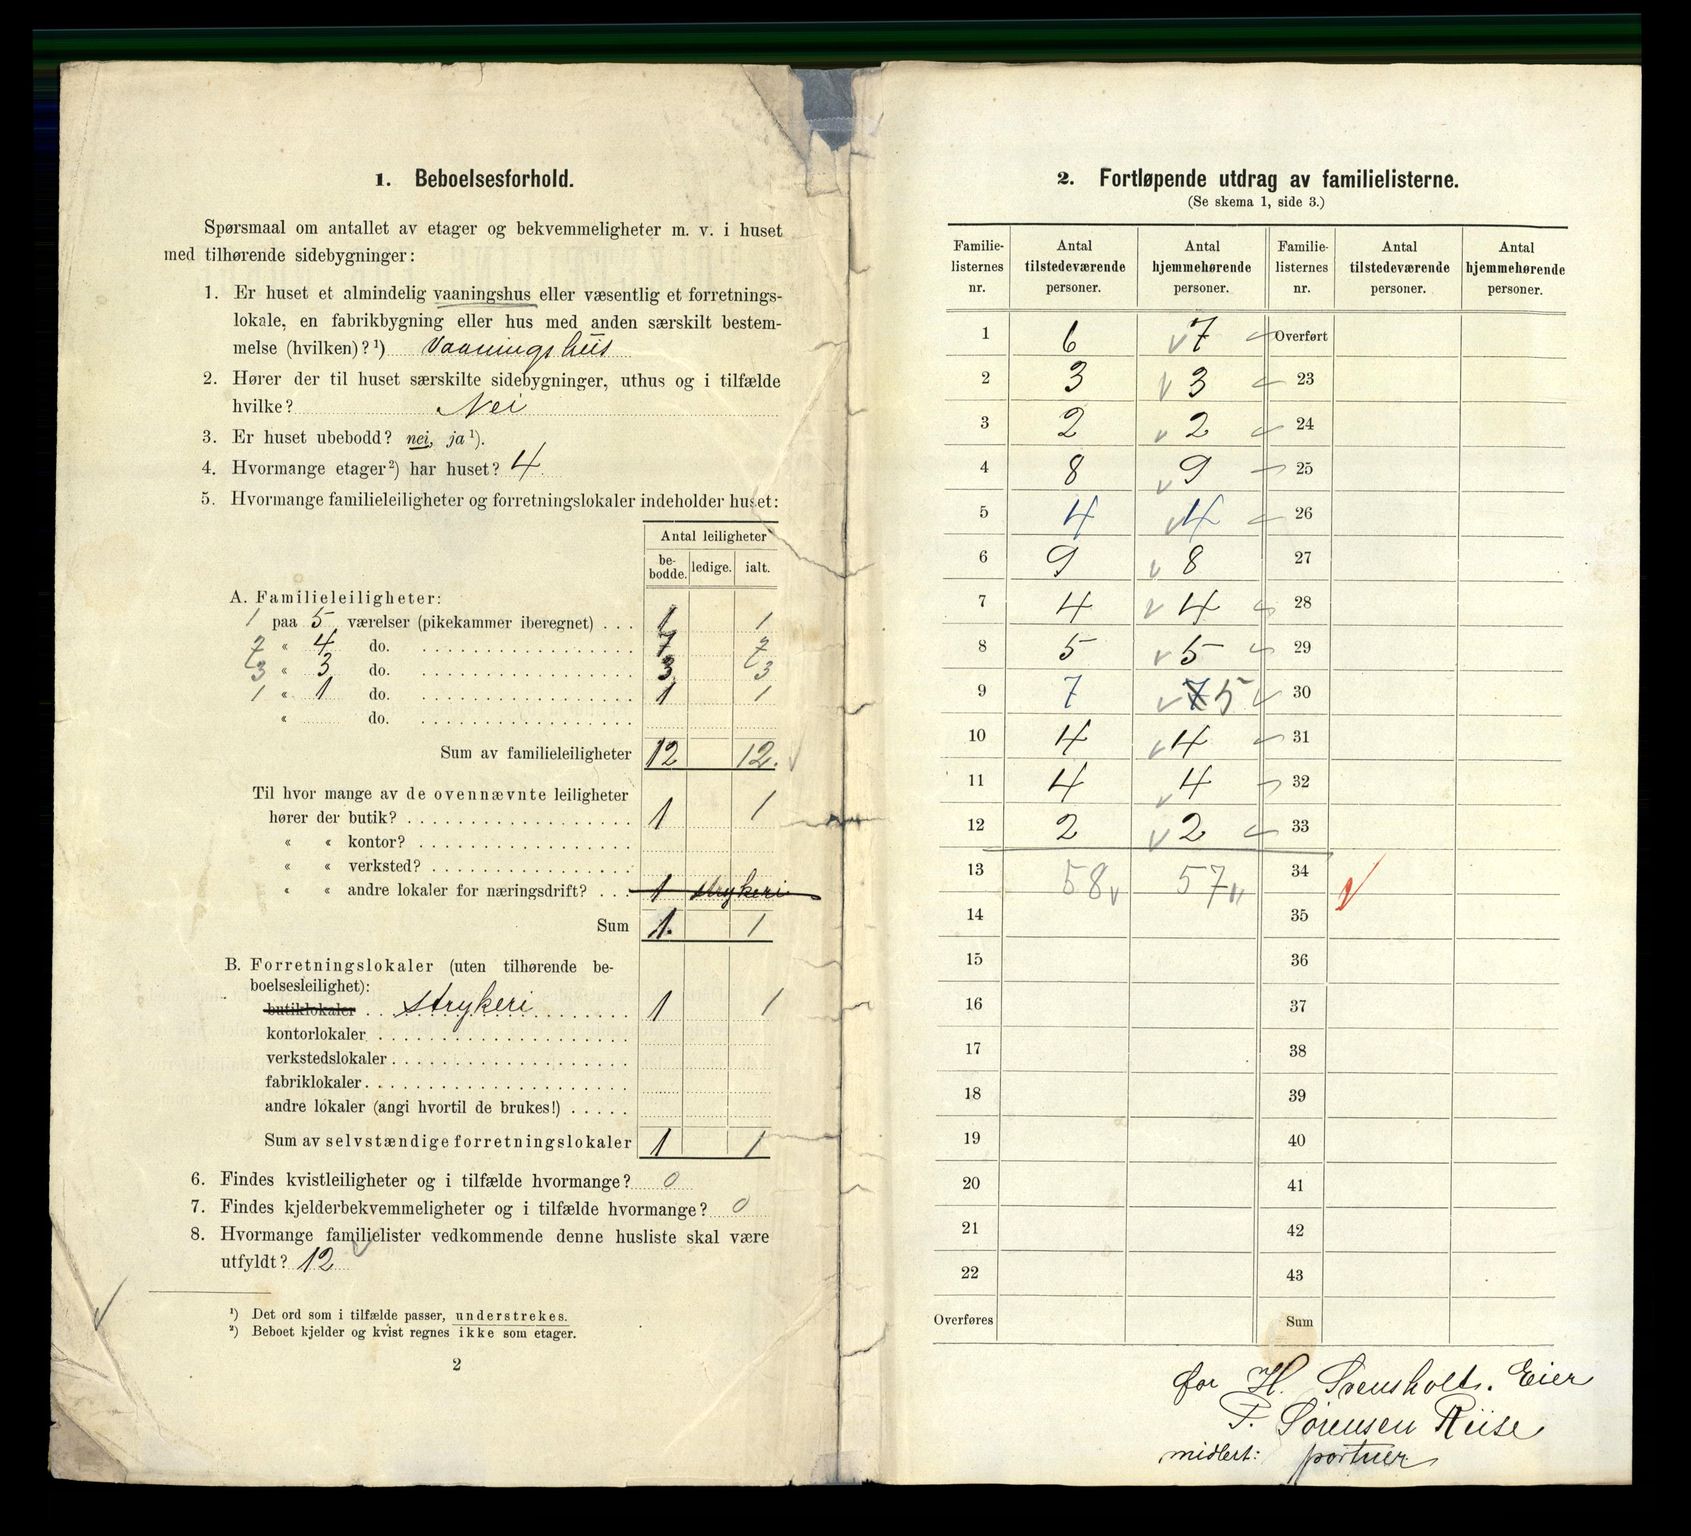 1. Beboelsesforhold.
Spørsmaal om antallet av etager og bekvemmeligheter m. v. i huset
med tilhørende sidebygninger:
1. Er huset et almindelig vaaningshus eller væsentlig et forretnings-
lokale, en fabrikbygning eller hus med anden særskilt bestem-
melse (hvilken)?¹) Vaaningshus
2. Hører der til huset særskilte sidebygninger, uthus og i tilfælde
hvilke? Nei
3. Er huset ubebodd? nei, ja¹).
4. Hvormange etager²) har huset? 4
5. Hvormange familieleiligheter og forretningslokaler indeholder huset:
Antal leiligheter
be-bodde. ledige. ialt.
A. Familieleiligheter:
1 paa 5 værelser (pikekammer iberegnet) . . . 1 1
7 « 4 do. 7 7
3 « 3 do. 3 3
1 « 1 do. 1 1
« do.
Sum av familieleiligheter 12 12.
Til hvor mange av de ovennævnte leiligheter
hører der butik? 1 1
« « kontor?
« « verksted?
« « andre lokaler for næringsdrift? . . . 1 strykeri
Sum 1. 1
B. Forretningslokaler (uten tilhørende be-
boelsesleilighet):
butiklokaler . . strykeri 1 1
kontorlokaler
verkstedslokaler
fabriklokaler
andre lokaler (angi hvortil de brukes!)
Sum av selvstændige forretningslokaler 1 1
6. Findes kvistleiligheter og i tilfælde hvormange? 0
7. Findes kjelderbekvemmeligheter og i tilfælde hvormange? 0
8. Hvormange familielister vedkommende denne husliste skal være
utfyldt? 12
¹) Det ord som i tilfælde passer, understrekes.
²) Beboet kjelder og kvist regnes ikke som etager.
2
2. Fortløpende utdrag av familielisterne.
(Se skema 1, side 3.)
Familie-listernes nr. Antal tilstedeværende personer. Antal hjemmehørende personer. Familie-listernes nr. Antal tilstedeværende personer. Antal hjemmehørende personer.
1 6 7 Overført
2 3 3 23
3 2 2 24
4 8 9 25
5 4 4 26
6 9 8 27
7 4 4 28
8 5 5 29
9 7 7 5 30
10 4 4 31
11 4 4 32
12 2 2 33
13 58 57 34
14 35
15 36
16 37
17 38
18 39
19 40
20 41
21 42
22 43
Overføres Sum
for H. Svensholt. Eier
P. Sørensen Riise
midlert: portner